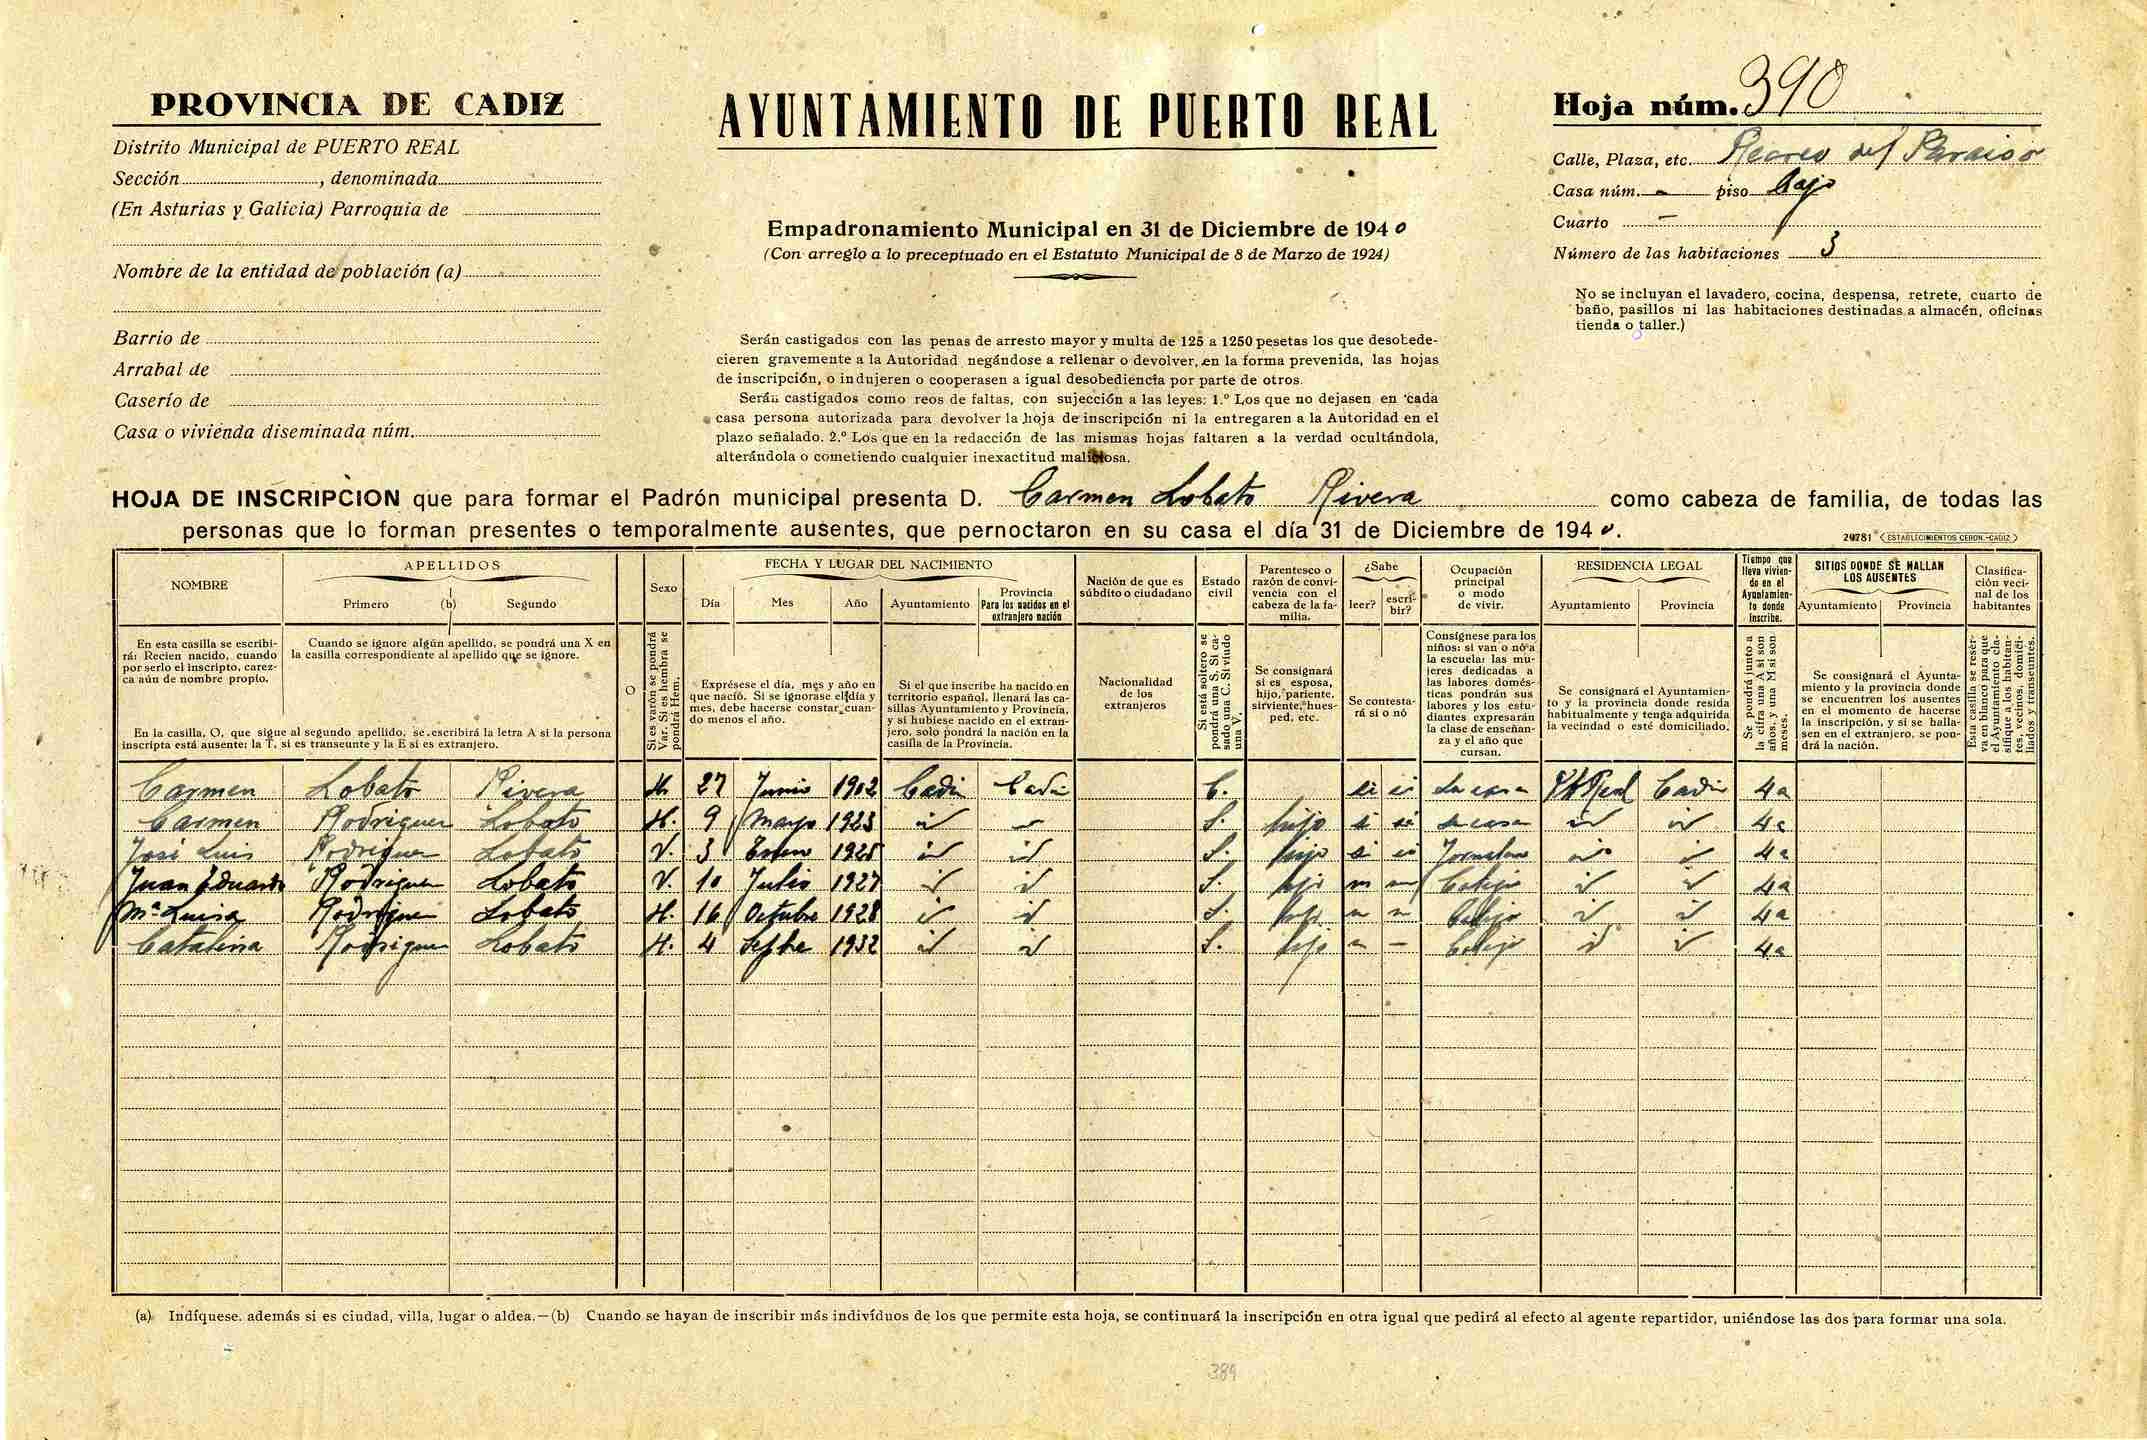 PROVINCIA DE CADIZ
Distrito Municipal de PUERTO REAL
Sección, denominada
(En Asturias y Galicia) Parroquia de
Nombre de la entidad de población (a)
Barrio de
Arrabal de
Caserío de
Casa o vivienda diseminada núm.
AYUNTAMIENTO DE PUERTO REAL
Empadronamiento Municipal en 31 de Diciembre de 1940
(Con arreglo a lo preceptuado en el Estatuto Municipal de 8 de Marzo de 1924)
Serán castigados con las penas de arresto mayor y multa de 125 a 1250 pesetas los que desobede-
cieren gravemente a la Autoridad negándose a rellenar o devolver, en la forma prevenida, las hojas
de inscripción, o indujeren o cooperasen a igual desobediencia por parte de otros.
Serán castigados como reos de faltas, con sujección a las leyes: 1.º Los que no dejasen en cada
casa persona autorizada para devolver la hoja de inscripción ni la entregaren a la Autoridad en el
plazo señalado. 2.º Los que en la redacción de las mismas hojas faltaren a la verdad ocultándola,
alterándola o cometiendo cualquier inexactitud maliciosa.
Hoja núm. 390
Calle, Plaza, etc. Recreo del Paraiso
Casa núm. - piso bajo
Cuarto —
Número de las habitaciones 3
No se incluyan el lavadero, cocina, despensa, retrete, cuarto de
baño, pasillos ni las habitaciones destinadas a almacén, oficinas
tienda o taller.)
HOJA DE INSCRIPCION que para formar el Padrón municipal presenta D. Carmen Lobato Rivera como cabeza de familia, de todas las
personas que lo forman presentes o temporalmente ausentes, que pernoctaron en su casa el día 31 de Diciembre de 1940.
20781 ESTABLECIMIENTOS CERON.-CADIZ
NOMBRE
APELLIDOS
Primero (b) Segundo
O
Sexo
FECHA Y LUGAR DEL NACIMIENTO
Día Mes Año Ayuntamiento
Provincia
Para los nacidos en el
extranjero nación
Nación de que es
súbdito o ciudadano
Estado
civil
Parentesco o
razón de convi-
vencia con el
cabeza de la fa-
milia.
¿Sabe
leer? escri-
bir?
Ocupación
principal
o modo
de vivir.
RESIDENCIA LEGAL
Ayuntamiento Provincia
Tiempo que
lleva vivien-
do en el
Ayuntamien-
to donde
inscribe.
SITIOS DONDE SE HALLAN
LOS AUSENTES
Ayuntamiento Provincia
Clasifica-
ción veci-
nal de los
habitantes
En esta casilla se escribi-
rá: Recien nacido, cuando
por serlo el inscripto, carez-
ca aún de nombre propio.
Cuando se ignore algún apellido, se pondrá una X en
la casilla correspondiente al apellido que se ignore.
En la casilla, O, que sigue al segundo apellido, se escribirá la letra A si la persona
inscripta está ausente: la T, si es transeunte y la E si es extranjero.
Si es varón se pondrá
Var. Si es hembra se
pondrá Hem.
Exprésese el día, mes y año en
que nació. Si se ignorase el día y
mes, debe hacerse constar cuan-
do menos el año.
Si el que inscribe ha nacido en
territorio español, llenará las ca-
sillas Ayuntamiento y Provincia,
y si hubiese nacido en el extran-
jero, solo pondrá la nación en la
casilla de la Provincia.
Nacionalidad
de los
extranjeros
Si está soltero se
pondrá una S. Si ca-
sado una C. Si viudo
una V.
Se consignará
si es esposa,
hijo, pariente,
sirviente, hues-
ped, etc.
Se contesta-
rá sí o nó
Consígnese para los
niños: si van o nó a
la escuela: las mu-
jeres dedicadas a
las labores domés-
ticas pondrán sus
labores y los estu-
diantes expresarán
la clase de enseñan-
za y el año que
cursan.
Se consignará el Ayuntamien-
to y la provincia donde resida
habitualmente y tenga adquirida
la vecindad o esté domiciliado.
Se pondrá junto a
la cifra una A si son
años, y una M si son
meses.
Se consignará el Ayunta-
miento y la provincia donde
se encuentren los ausentes
en el momento de hacerse
la inscripción, y si se halla-
sen en el extranjero, se pon-
drá la nación.
Esta casilla se reser-
va en blanco para que
el Ayuntamiento cla-
sifique a los habitan-
tes, vecinos, domici-
liados y transeuntes.
Carmen Lobato Rivera H. 27 Junio 1902 Cadiz Cadiz C. si si Su casa Pto Real Cadiz 4a
Carmen Rodriguez Lobato H. 9 Mayo 1923 id — S. hijo si si su casa id id 4a
José Luis Rodriguez Lobato V. 3 Enero 1925 id id S. hijo si si Jornalero id id 4a
Juan Eduardo Rodriguez Lobato V. 10 Julio 1927 id id S. hijo Colegio id id 4a
Mª Luisa Rodriguez Lobato H. 16 Octubre 1928 id id S. hijo Colegio id id 4a
Catalina Rodriguez Lobato H. 4 Septbe 1932 id id S. hijo — Colegio id id 4a
(a) Indíquese además si es ciudad, villa, lugar o aldea.—(b) Cuando se hayan de inscribir más indivíduos de los que permite esta hoja, se continuará la inscripción en otra igual que pedirá al efecto al agente repartidor, uniéndose las dos para formar una sola.
389